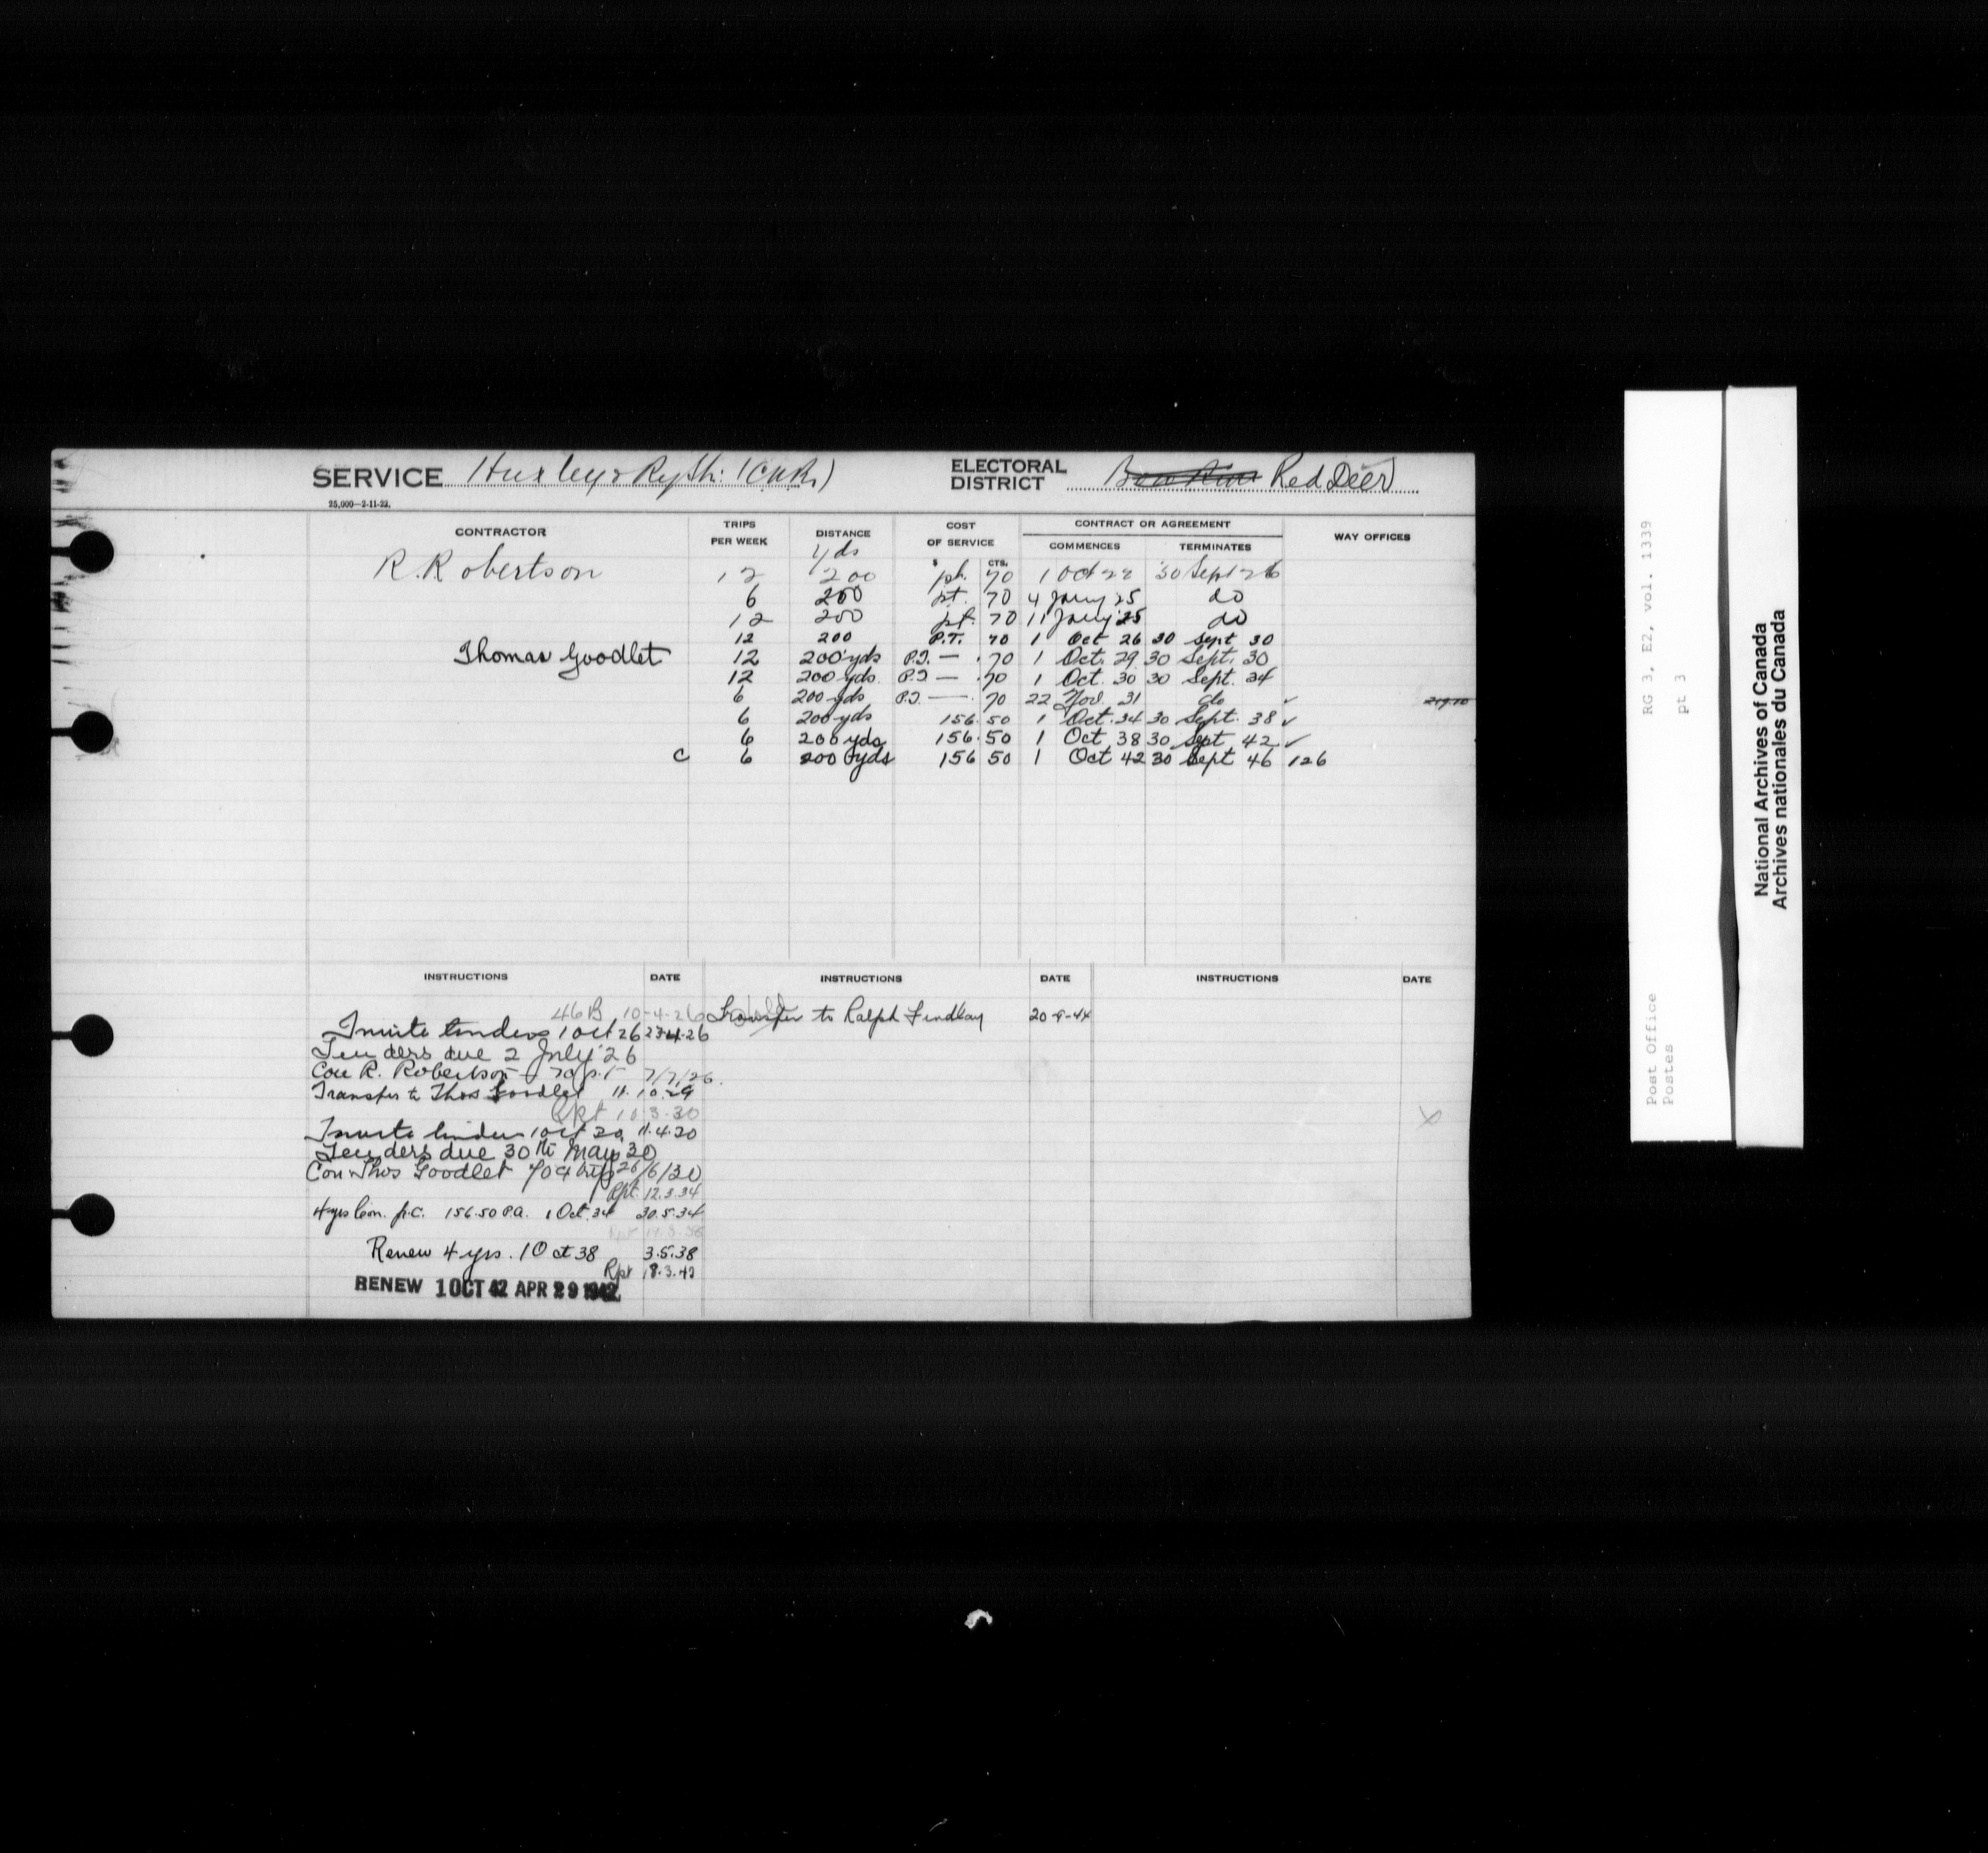 SERVICE Huxley & Ry Stn. (C.N.R.)
ELECTORAL DISTRICT Red Deer
25,000—2-11-22.
CONTRACTOR TRIPS PER WEEK DISTANCE COST OF SERVICE CONTRACT OR AGREEMENT COMMENCES TERMINATES WAY OFFICES
yds $ CTS.
R. Robertson 12 200 pt. 70 1 Oct 22 30 Sept 26
6 200 pt. 70 4 Jany 25 do
12 200 pt. 70 11 Jany 25 do
12 200 P.T. 70 1 Oct 26 30 Sept 30
Thomas Goodlet 12 200 yds P.T. — .70 1 Oct. 29 30 Sept. 30
12 200 yds. P.T. — .70 1 Oct. 30 30 Sept. 34
6 200 yds P.T. — .70 22 Nov. 31 do ✓ 219.10
6 200 yds 156.50 1 Oct. 34 30 Sept. 38 ✓
6 200 yds 156.50 1 Oct 38 30 Sept 42 ✓
C 6 200 yds 156 50 1 Oct 42 30 Sept 46 126
INSTRUCTIONS DATE INSTRUCTIONS DATE INSTRUCTIONS DATE
46B 10-4-26
Transfer to Ralph Findlay 20-9-44
Invite tenders 1 Oct 26 23.4.26
Tenders due 2 July '26
Con R. Robertson 70 p.t. 7/7/26.
Transfer to Thos Goodlet 11.10.29
Rpt 10.3.30
Invite tenders 1 Oct 30 11.4.30
Tenders due 30th May 30
Con Thos Goodlet 70¢ trip 26/6/30
Rpt. 12.3.34
4 yrs Con. p.c. 156.50 P.A. 1 Oct. 34 30.5.34
Renew 4 yrs. 1 Oct 38 3.5.38
Rpt 18.3.42
RENEW 1 OCT 42 APR 29 1942
X
RG 3, E2, vol. 1339
pt 3
Post Office
Postes
National Archives of Canada
Archives nationales du Canada